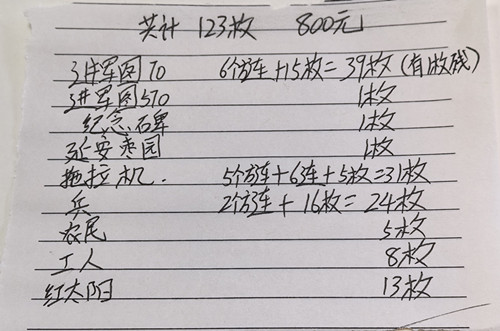 共计 123枚 800元
3井军图70 6个方连+15枚=39枚(有1枚残)
3井军图570 1枚
纪念碑 1枚
延安枣园 1枚
拖拉机. 5个方连+6连+5枚=31枚
兵 2个方连+16枚=24枚
农民 5枚
工人 8枚
红太阳 13枚